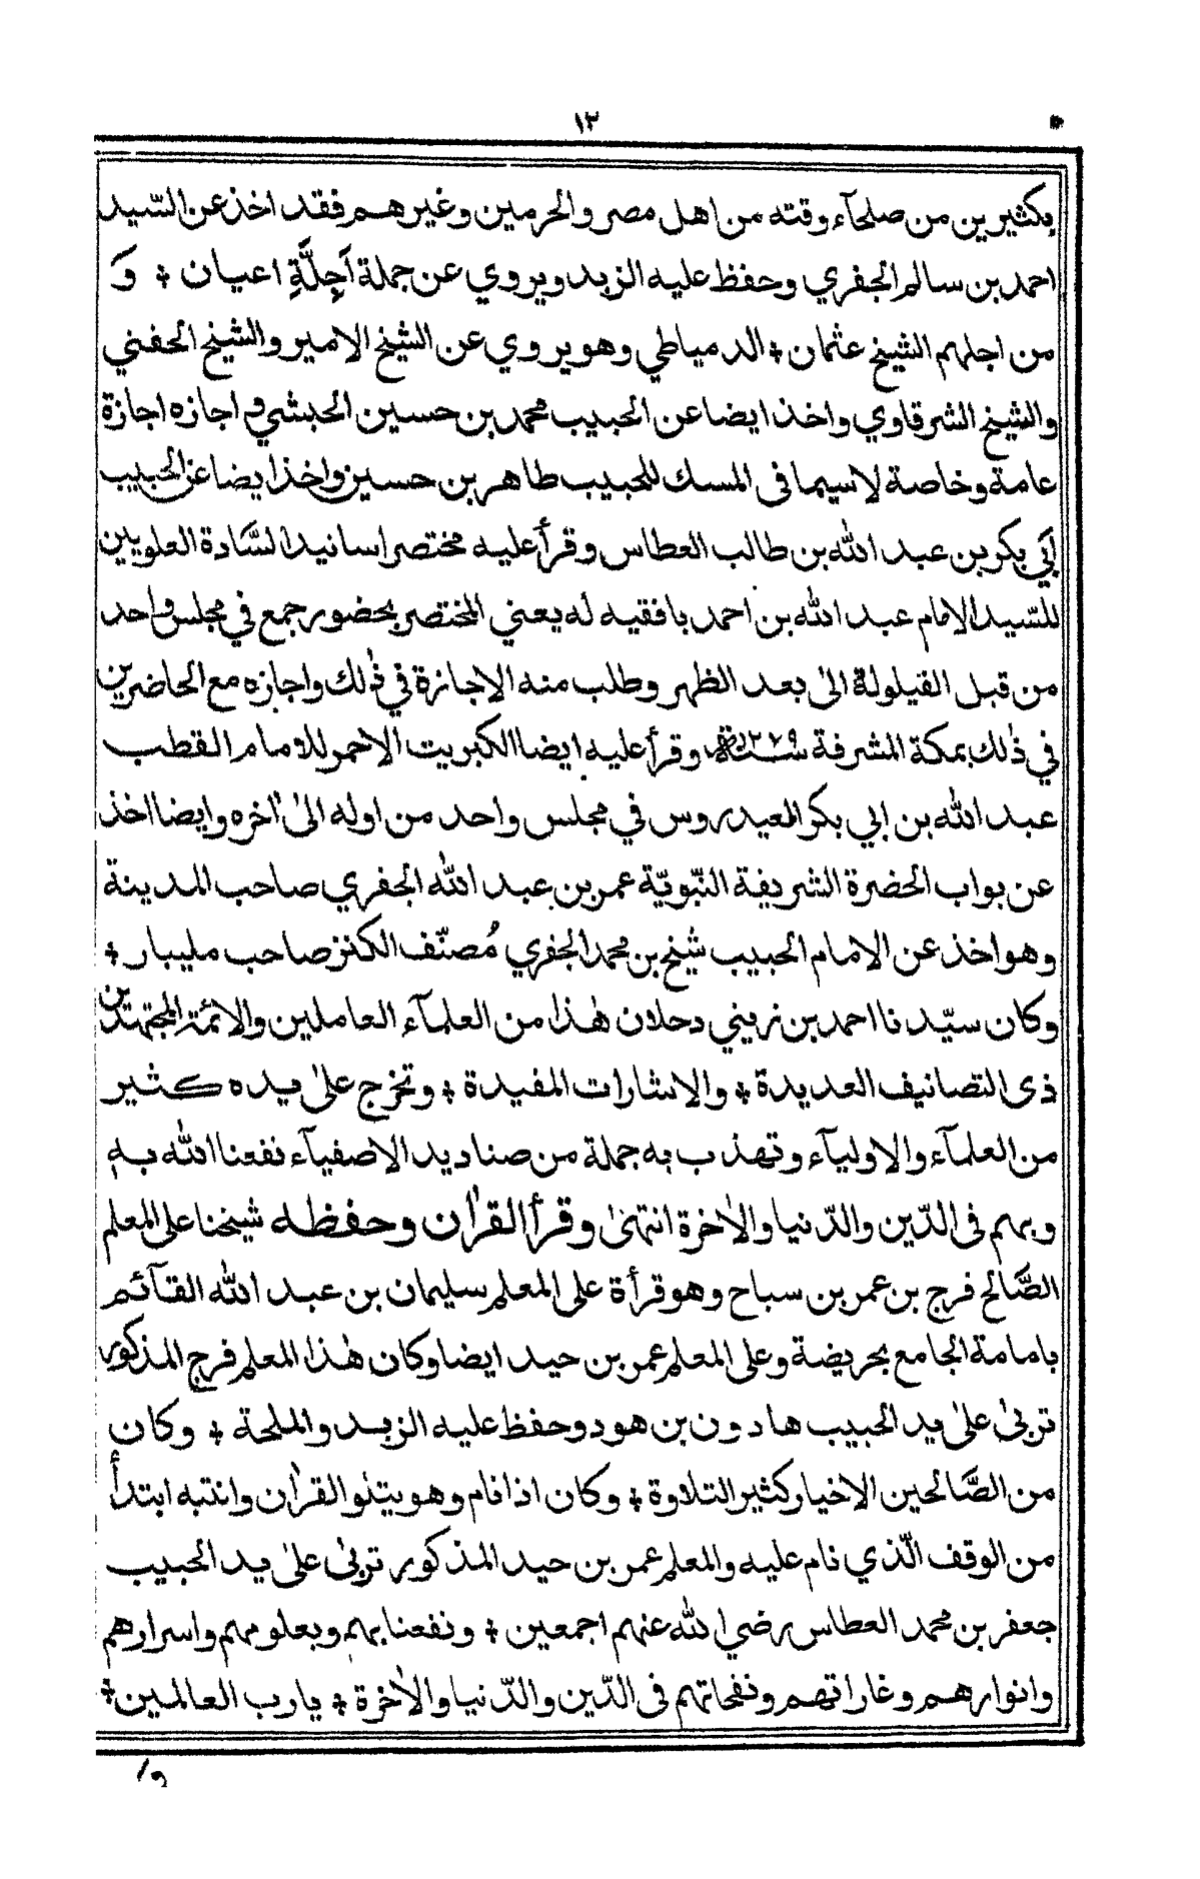 ١٢
بكثيرين من صلحآء وقته من اهل مصر والحرمين وغيرهم فقد اخذ عن السّيد
احمد بن سالم الجفري وحفظ عليه الزبد ويروي عن جملة اَجِلَّةٍ اعيان ÷ وَ
من اجلهم الشيخ عثمان ÷ الدمياطي وهو يروي عن الشيخ الامير والشيخ الحفني
والشيخ الشرقاوي واخذ ايضا عن الحبيب محمد بن حسين الحبشي واجازه اجازة
عامة وخاصة لاسيما فى المسك للحبيب طاهر بن حسين واخذ ايضا عن الحبيب
أبي بكر بن عبد الله بن طالب العطاس وقرأ عليه مختصر اسانيد السَّادة العلويين
للسّيد الامام عبد الله بن احمد بافقيه له يعني المختصر بحضور جمع في مجلس واحد
من قبل القيلولة الىٰ بعد الظهر وطلب منه الاجازة في ذٰلك واجازه مع الحاضرين
في ذٰلك بمكة المشرفة سنة ١٢٧٩ وقرأ عليه ايضا الكبريت الاحمر للامام القطب
عبد الله بن ابي بكر العيدروس في مجلس واحد من اوله الىٰ اٰخره وايضا اخذ
عن بواب الحضرة الشريفة النّبويّة عمر بن عبد الله الجفري صاحب المدينة
وهو اخذ عن الامام الحبيب شيخ بن محمد الجفري مُصنّف الكنز صاحب مليبار ÷
وكان سيّدنا احمد بن زيني دحلان هٰذا من العلمآء العاملين والائمة المجتهدين
ذى التصانيف العديدة ÷ والاشارات المفيدة ÷ وتخرج علىٰ يده كثير
من العلمآء والاوليآء وتهذب به جملة من صناديد الاصفيآء نفعنا الله به
وبهم فى الدّين والدّنيا والاٰخرة انتهىٰ وقرأ القراٰن وحفظه شيخنا على المعلم
الصَّالح فرج بن عمر بن سباح وهو قرأة على المعلم سليمان بن عبد الله القآئم
بامامة الجامع بحريضة وعلى المعلم عمر بن حيد ايضا وكان هٰذا المعلم فرج المذكور
تربىٰ علىٰ يد الحبيب هادون بن هود وحفظ عليه الزبد والملحة ÷ وكان
من الصَّالحين الاخيار كثير التلاوة ÷ وكان اذا نام وهو يتلو القراٰن وانتبه ابتدأ
من الوقف الّذي نام عليه والمعلم عمر بن حيد المذكور تربىٰ علىٰ يد الحبيب
جعفر بن محمد العطاس رضي الله عنهم اجمعين ÷ ونفعنا بهم وبعلومهم واسرارهم
وانوارهم وغاراتهم ونفحاتهم فى الدّين والدّنيا والاٰخرة ÷ يارب العالمين ÷